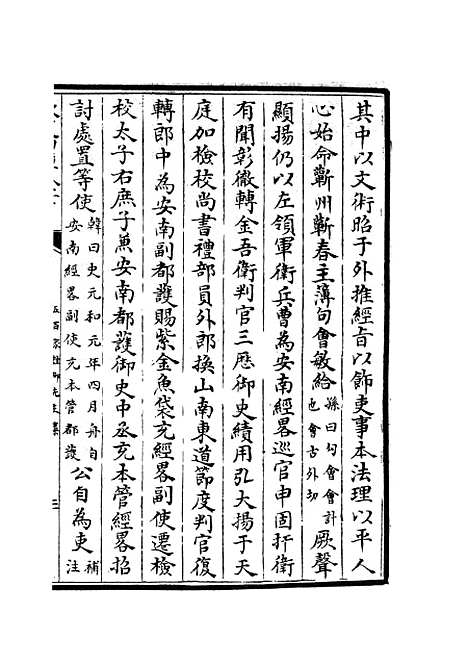 其中以文術昭于外推經旨以飾吏事本法理以平人
心始命蘄州蘄春主簿句會敏給孫曰句會會計也會古外切厥聲
顯揚仍以左領軍衛兵曹為安南經畧巡官申固扞衛
有聞彰徹轉金吾衛判官三歷御史績用弘大揚于天
庭加檢校尚書禮部員外郎換山南東道節度判官復
轉郎中為安南副都護賜紫金魚袋充經畧副使遷檢
校太子右庶子兼安南都護御史中丞充本管經畧招
討處置等使韓曰史元和元年四月舟自安南經畧副使充本管都護公自為吏補注